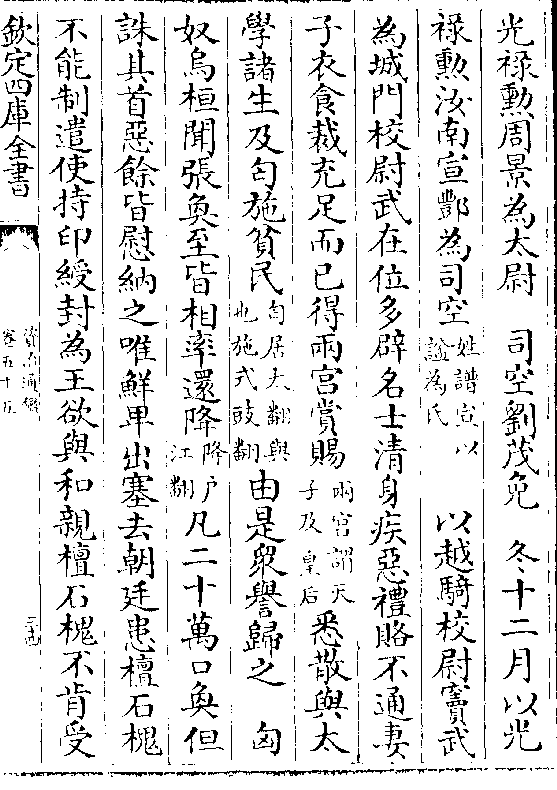 光祿勲周景為太尉　司空劉茂免　冬十二月以光
祿勲汝南宣酆為司空姓譜宣以諡為氏以越騎校尉竇武
為城門校尉武在位多辟名士清身疾惡禮賂不通妻
子衣食裁充足而已得兩宫賞賜兩宫謂天子及皇后悉散與太
學諸生及匄施貧民匄居大翻與也施式豉翻由是衆譽歸之　匈
奴烏桓聞張奐至皆相率還降降户江翻凡二十萬口奐但
誅其首惡餘皆慰納之唯鮮卑出塞去朝廷患檀石槐
不能制遣使持印綬封為王欲與和親檀石槐不肯受
欽定四庫全書
資治通鑑
卷五十五